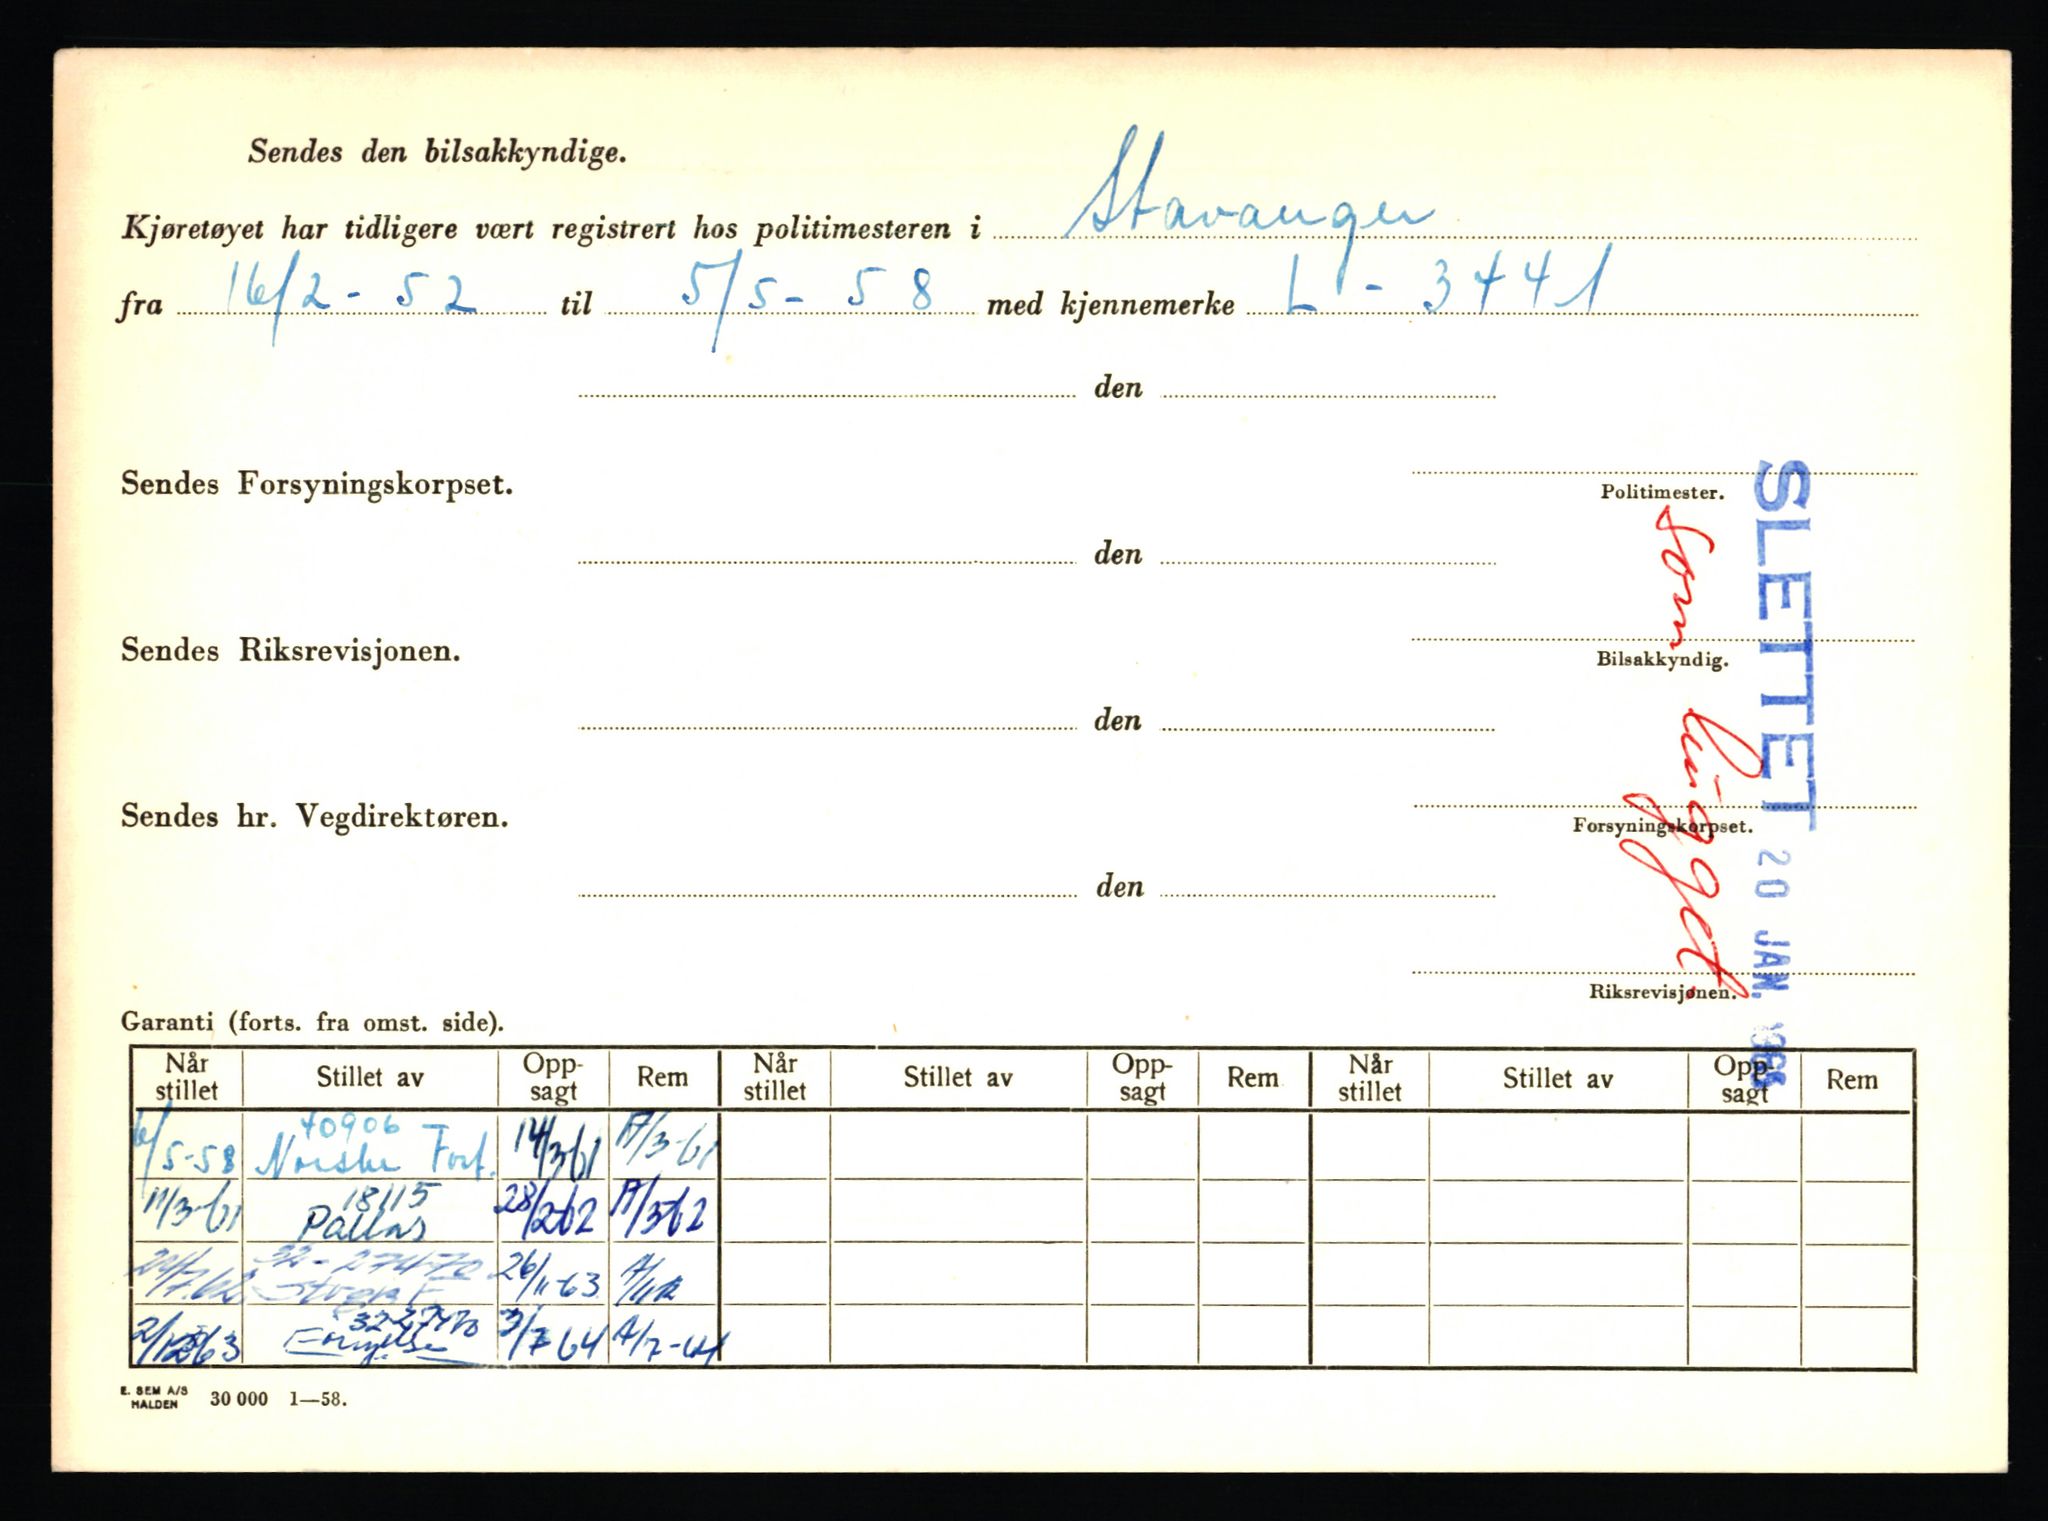 Sendes den bilsakkyndige.
Kjøretøyet har tidligere vært registrert hos politimesteren i Stavanger
fra 16/2-52 til 5/5-58 med kjennemerke L-3441
den
Sendes Forsyningskorpset.
Politimester.
den
Sendes Riksrevisjonen.
Bilsakkyndig.
den
Sendes hr. Vegdirektøren.
Forsyningskorpset.
den
Riksrevisjonen.
SLETTET 20 JAN. 1966
Som
Garanti (forts. fra omst. side).
Når stillet Stillet av Opp-sagt Rem Når stillet Stillet av Opp-sagt Rem Når stillet Stillet av Opp-sagt Rem
40906
6/5-58 Norske Forf. 14/3-61 A/3-61
18115
11/3-61 Pallas 28/2-62 A/3-62
32-27470
26/11-63
32-27470
2/12-63 3/7-64 A/7-64
E. SEM A/S
HALDEN 30 000 1—58.